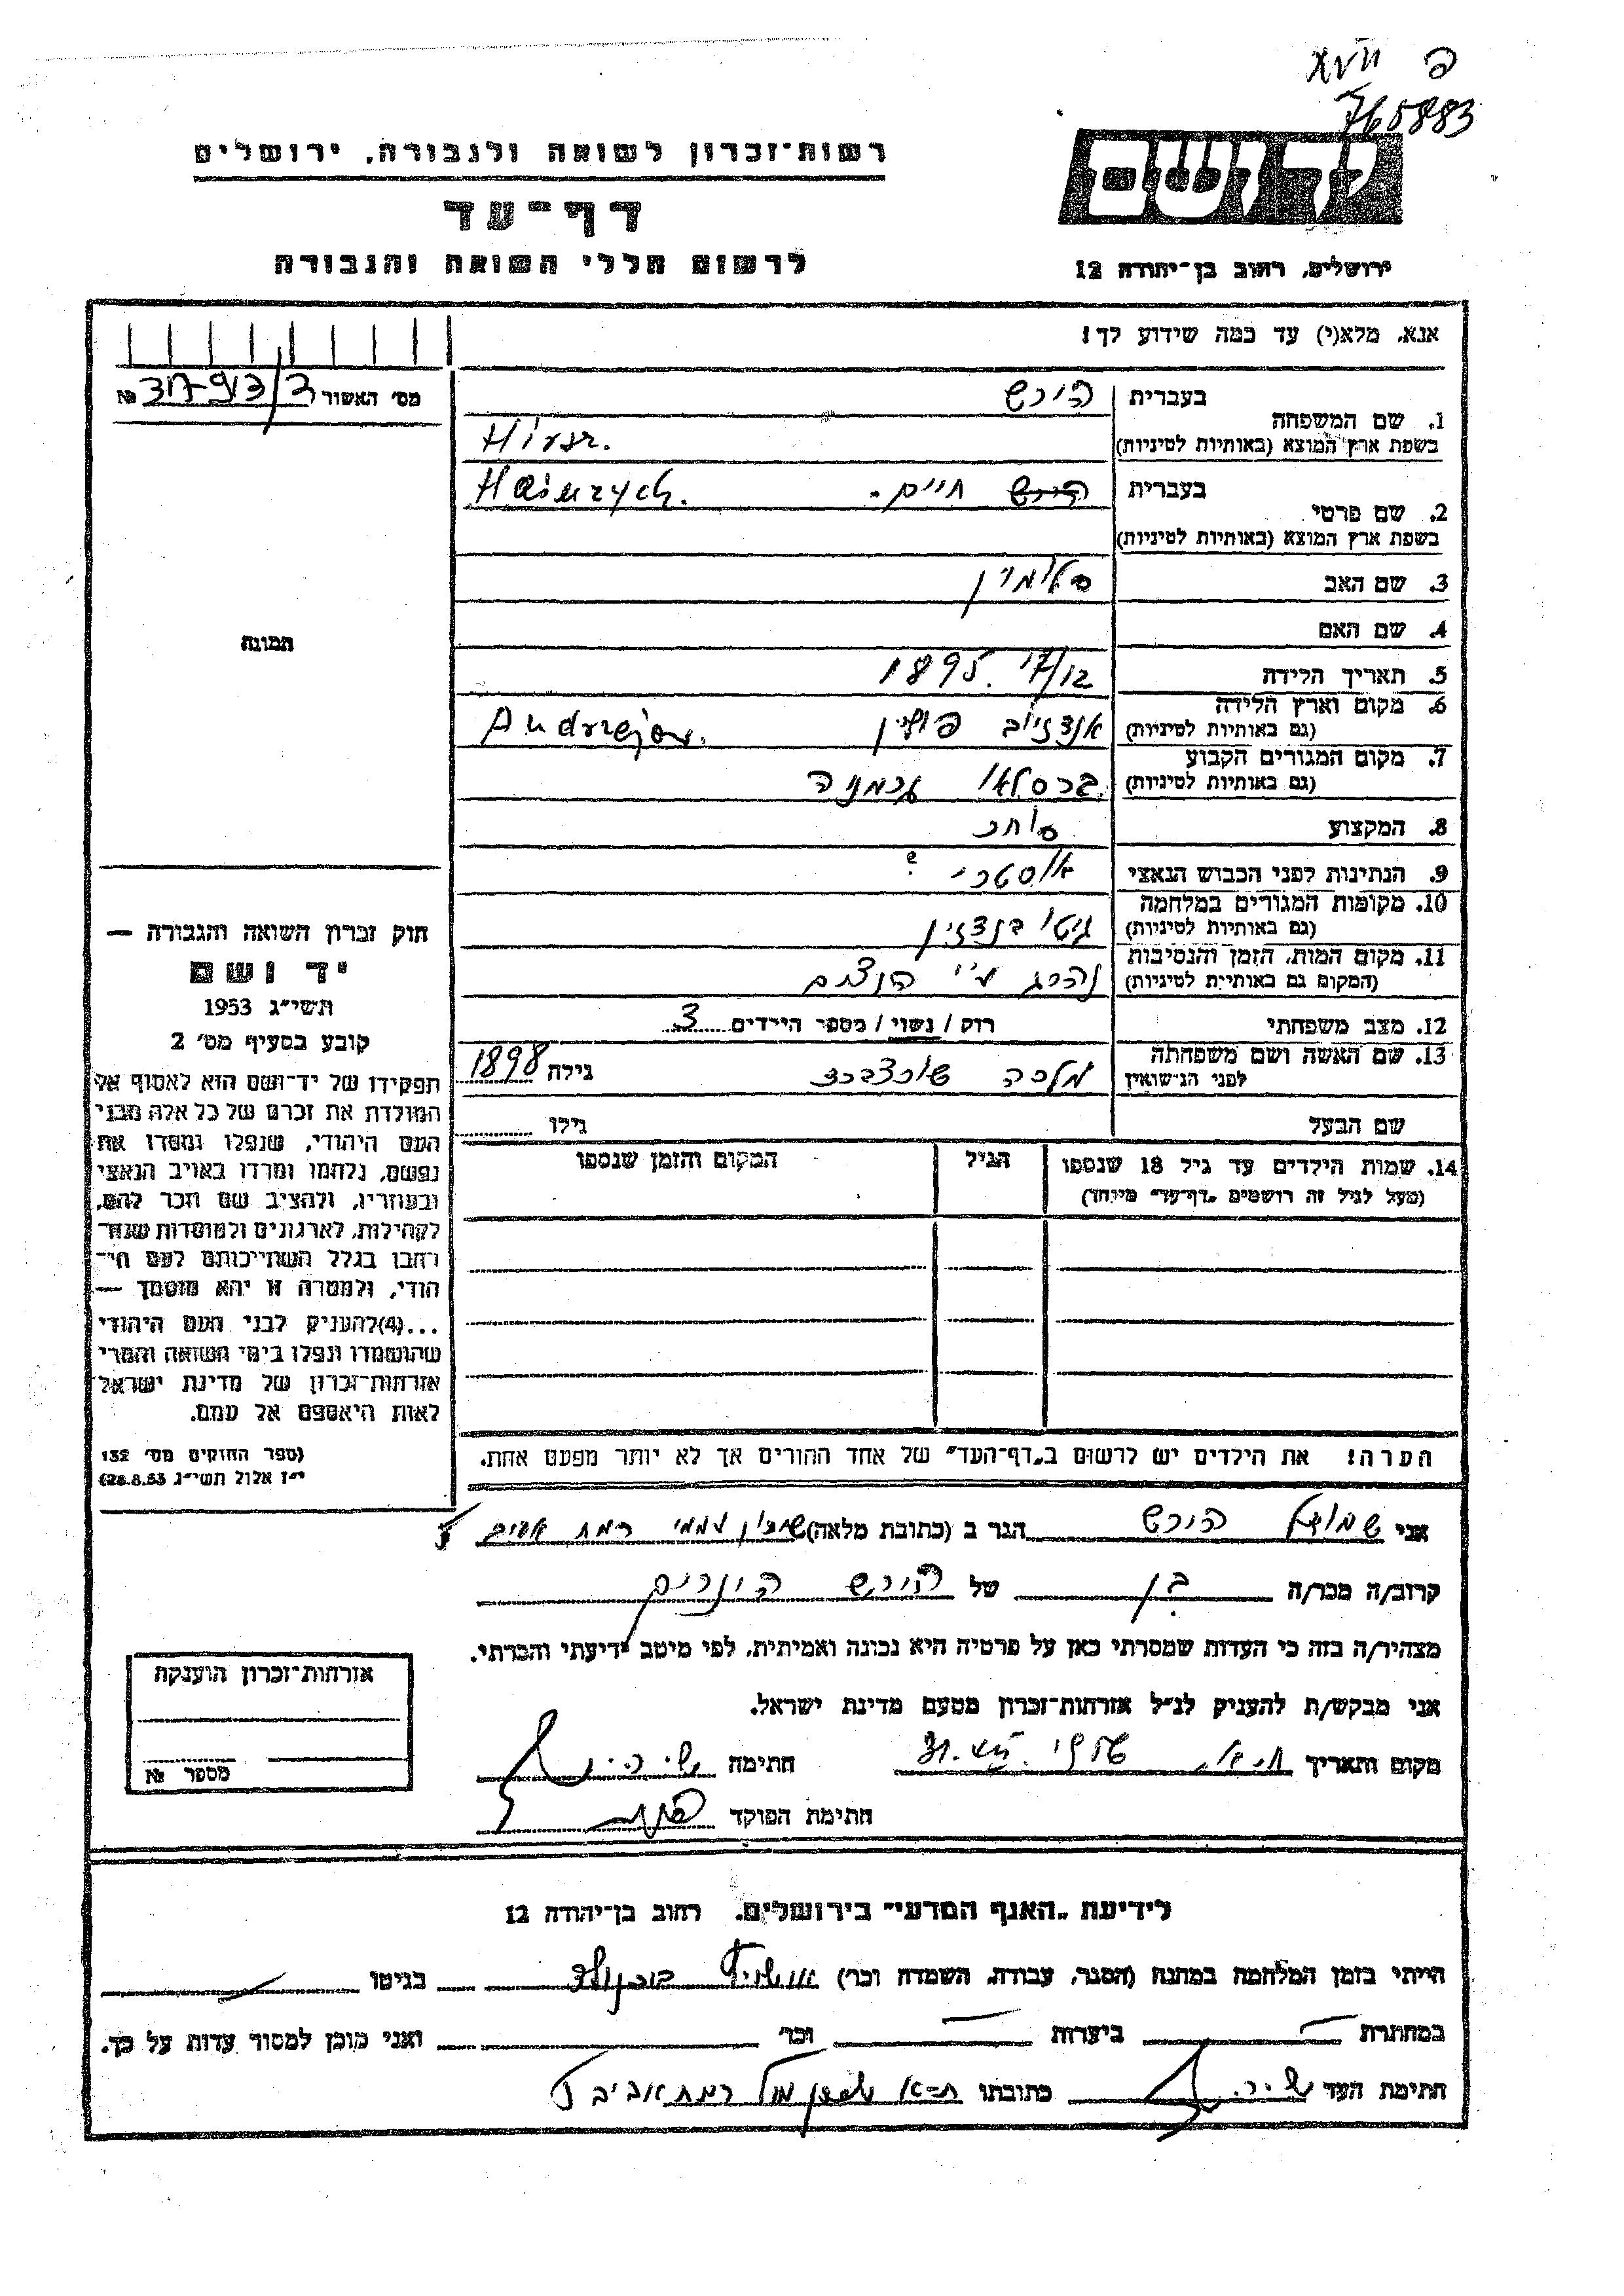 765883
רשות־זכרון לשואה ולגבורה, ירושלים
דף־עד
לרשום חללי השואה והגבורה
יד ושם
ירושלים, רחוב בן־יהודה 12
אנא, מלא(י) עד כמה שידוע לך!
מס׳ האשור №
בעברית הירש
1. שם המשפחה
בשפת ארץ המוצא (באותיות לטיניות)
בעברית הירש חיים. Hainrych.
2. שם פרטי
בשפת ארץ המוצא (באותיות לטיניות)
3. שם האב סלומון
4. שם האם
5. תאריך הלידה 17/12. 1895
6. מקום וארץ הלידה
(גם באותיות לטיניות) פולין Andrzejow.
7. מקום המגורים הקבוע
(גם באותיות לטיניות) ברסלאו גרמניה
8. המקצוע סוחר
9. הנתינות לפני הכבוש הנאצי אוסטרי ?
10. מקומות המגורים במלחמה
(גם באותיות לטיניות) גיטו בנדזין
11. מקום המות, הזמן והנסיבות
(המקום גם באותיית לטיניות) נהרג ע״י הנאצים
12. מצב משפחתי רוק / נשוי / מספר הילדים 3
13. שם האשה ושם משפחתה
לפני הנישואין מלכה גילה 1898
שם הבעל גילו
14. שמות הילדים עד גיל 18 שנספו הגיל המקום והזמן שנספו
(מעל לגיל זה רושמים „דף־עד״ מיוחד)
הערה! את הילדים יש לרשום ב„דף־העד״ של אחד ההורים אך לא יותר מפעם אחת.
תמונה
חוק זכרון השואה והגבורה —
יד ושם
תשי״ג 1953
קובע בסעיף מס׳ 2
תפקידו של יד־ושם הוא לאסוף אל
המולדת את זכרם של כל אלה מבני
העם היהודי, שנפלו ומסרו את
נפשם, נלחמו ומרדו באויב הנאצי
ובעוזריו, ולהציב שם וזכר להם,
לקהילות, לארגונים ולמוסדות שנח־
רבו בגלל השתייכותם לעם הי־
הודי, ולמטרה זו יהא מוסמך —
...(4)להעניק לבני העם היהודי
שהושמדו ונפלו בימי השואה והמרי
אזרחות־זכרון של מדינת ישראל
לאות היאספם אל עמם.
(ספר החוקים מס׳ 132
י״ז אלול תשי״ג 28.8.53)
אני שמואל הירש הגר ב (כתובת מלאה) שיכון עממי רמת אביב
קרוב/ה מכר/ה בן של הירש היינריך
מצהיר/ה בזה כי העדות שמסרתי כאן על פרטיה היא נכונה ואמיתית, לפי מיטב ידיעתי והכרתי.
אני מבקש/ת להעניק לנ״ל אזרחות־זכרון מטעם מדינת ישראל.
מקום ותאריך חתימה
חתימת הפוקד
אזרחות־זכרון הוענקה
מספר №
לידיעת „האגף המדעי״ בירושלים, רחוב בן־יהודה 12
הייתי בזמן המלחמה במחנה (הסגר, עבודה, השמדה וכו׳) אושויץ בוכנוולד בגיטו
במחתרת ביערות וכו׳ ואני מוכן למסור עדות על כך.
חתימת העד כתובתו רמת אביב